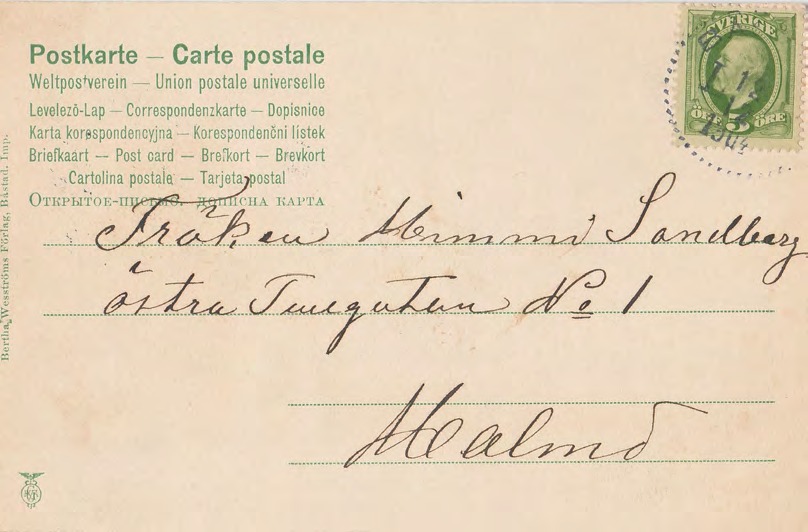 Postkarte — Carte postale
Weltpostverein — Union postale universelle
Levelező-Lap — Correspondenzkarte — Dopisnice
Karta korespondencyjna — Korespondenční lístek
Briefkaart — Post card — Brefkort — Brevkort
Cartolina postale — Tarjeta postal
Открытое-письмо. дописна карта
SVERIGE
ÖRE 5 ÖRE
12
Fröken Mimmi Sandberg
östra No 1
Malmö
Bertha Wesströms Förlag, Båstad. Imp.